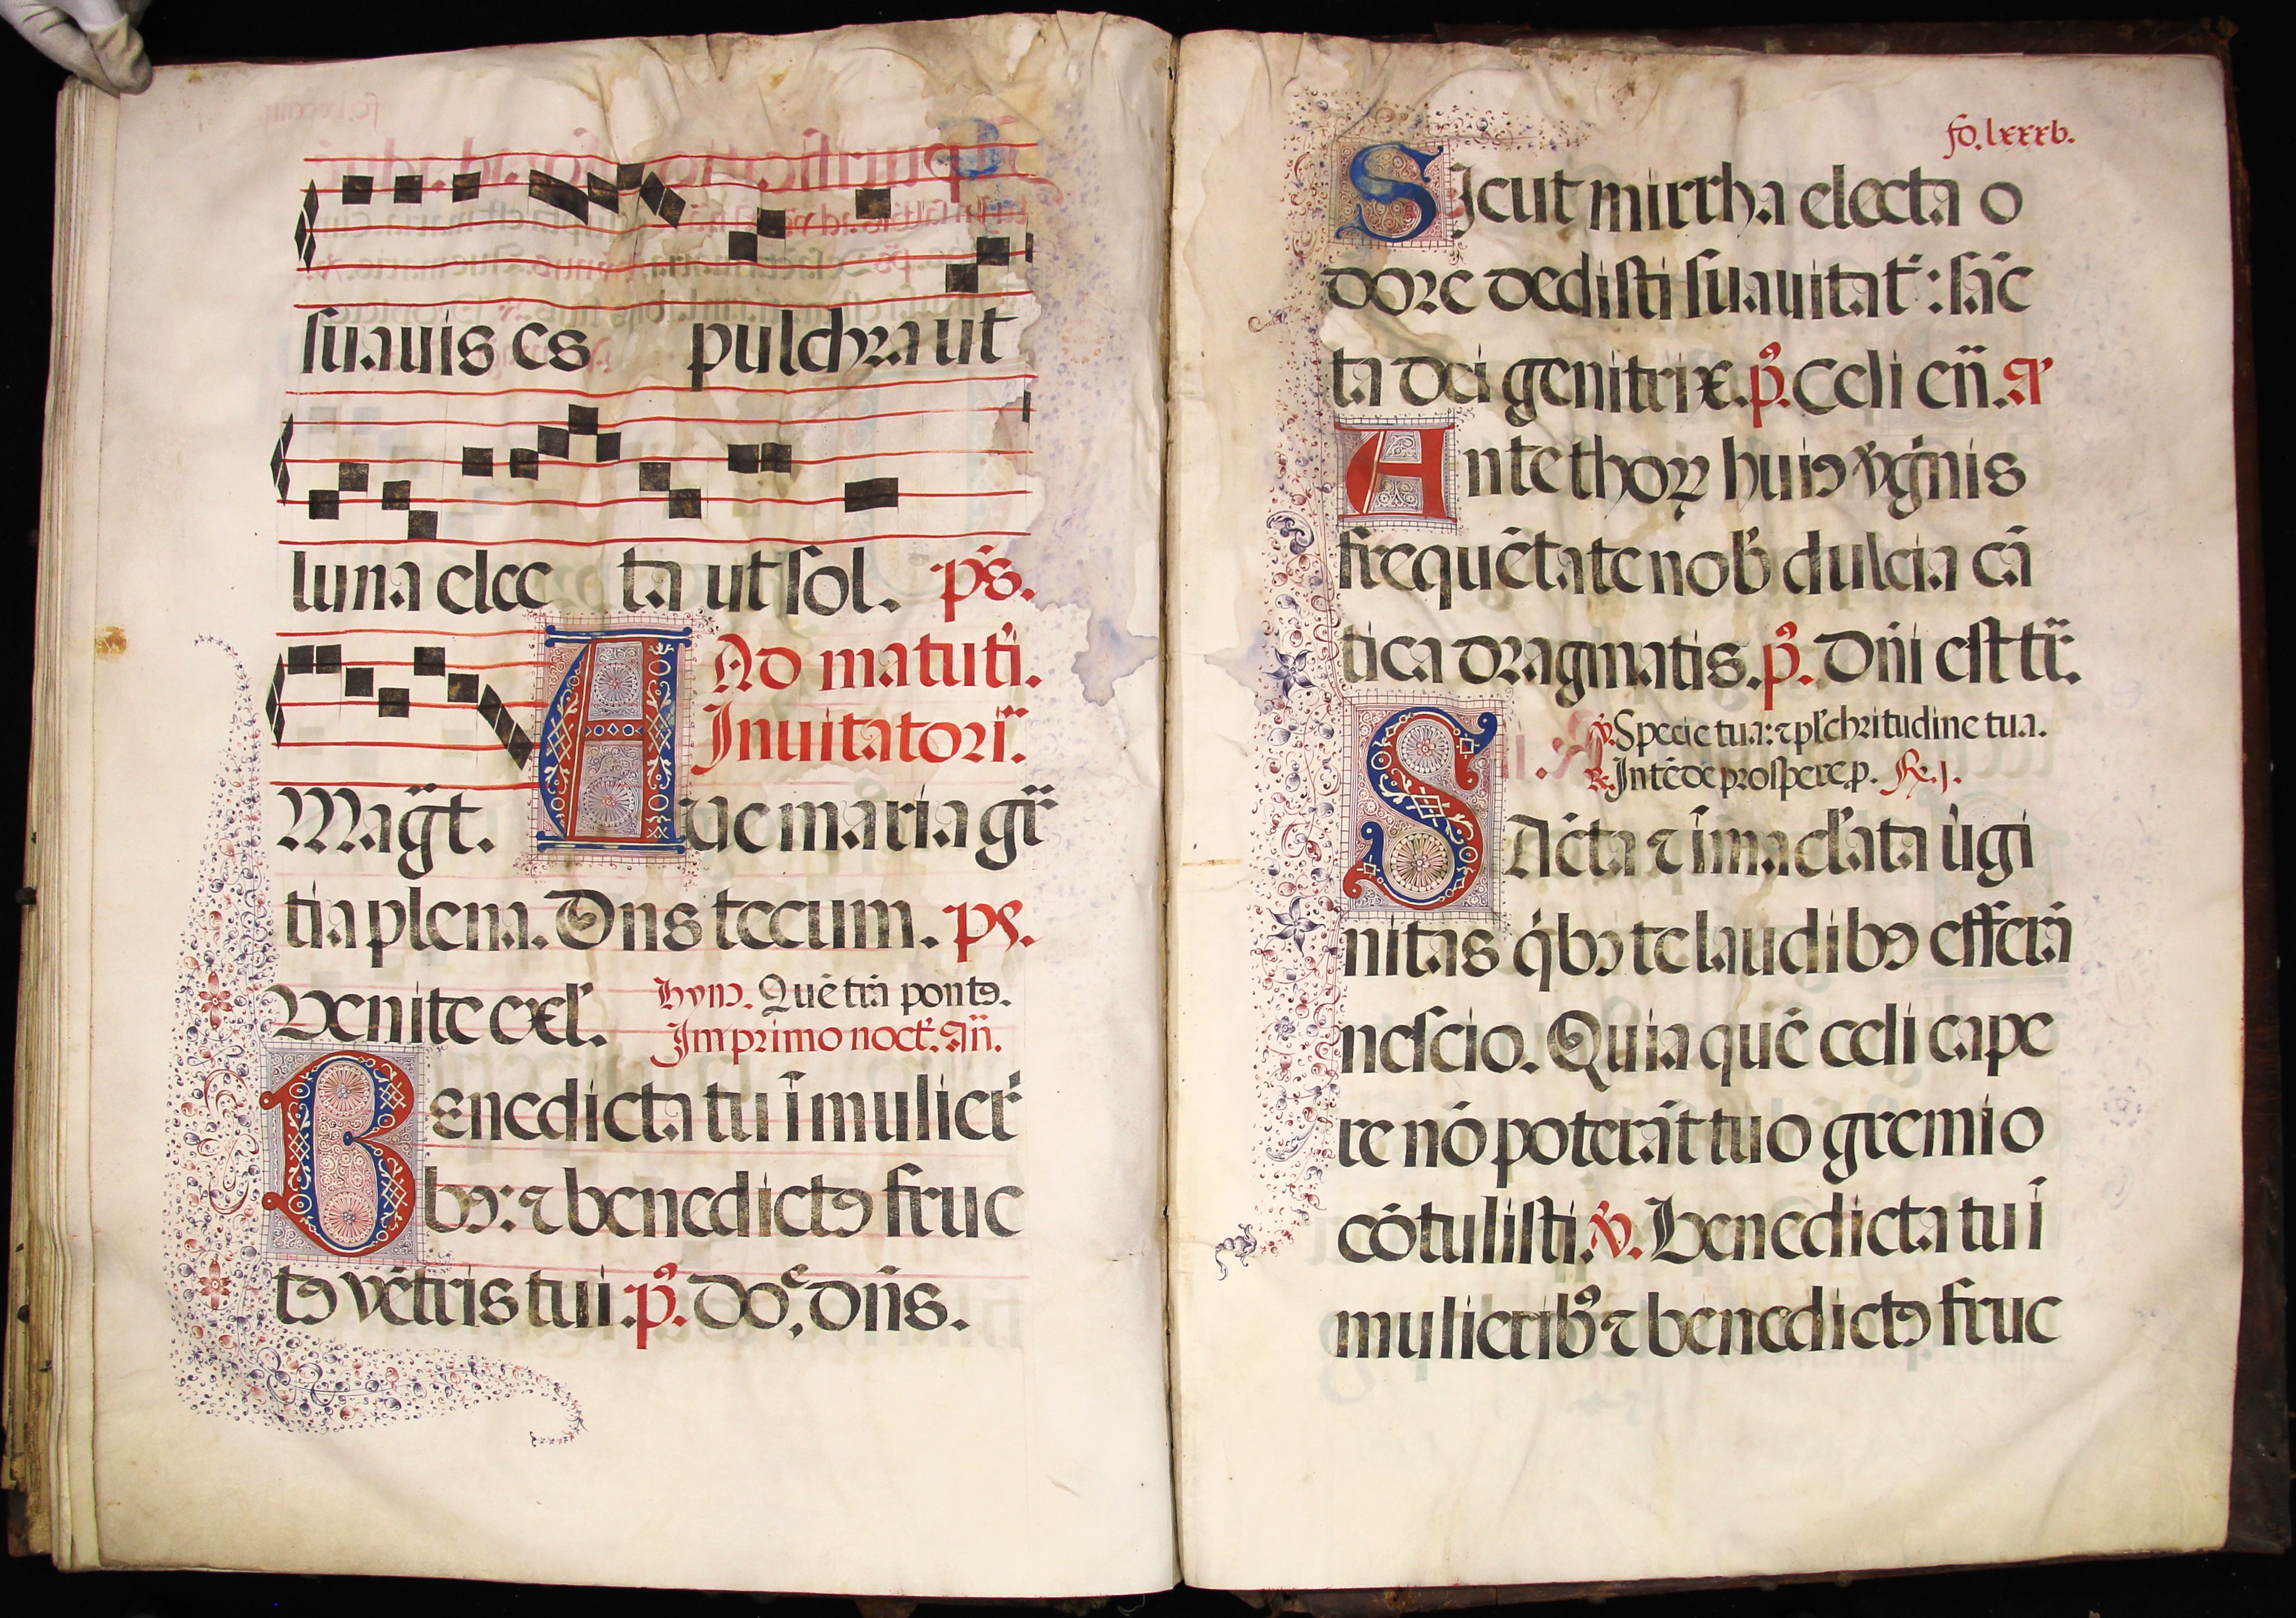 suauis es pulchra ut
luna elec ta ut sol. ps̄.
Ad matuti̅.
Inuitatori̅.
Mag̅t. Aue maria gr̅
tia plena. Dn̅s tecum. ps.
Venite exl̅. hymꝯ. Que̅ tr̅a pontꝯ.
Im primo noct̅. an̅.
Benedicta tu i̅ mulier̅
bꝯ: ⁊ benedictꝯ fruc
tꝯ ve̅tris tui. p̅ꝰ. Do. dn̅s.
fo. lxxxv.
Sicut mirrha electa o
dore dedisti suauitat̅: sa̅c
ta dei genitrix. p̅ꝰ. Celi en̅. a̅
Ante thoꝝ huiꝯ vg̅nis
freque̅tate nob̅ dulcia ca̅
tica dragmatis. p̅ꝰ. Dn̅i est tr̅.
℣. Specie tua: ⁊ pl̅chritudine tua.
℟. Inte̅de prospere p. Re. j.
Sa̅cta ⁊ i̅macl̅ata u̅gi
nitas q̅bꝯ te laudibꝯ effera̅
nescio. Quia que̅ celi cape
re no̅ potera̅t tuo gremio
co̅tulisti. ℣. Benedicta tu i̅
mulieribꝰ ⁊ benedictꝯ fruc